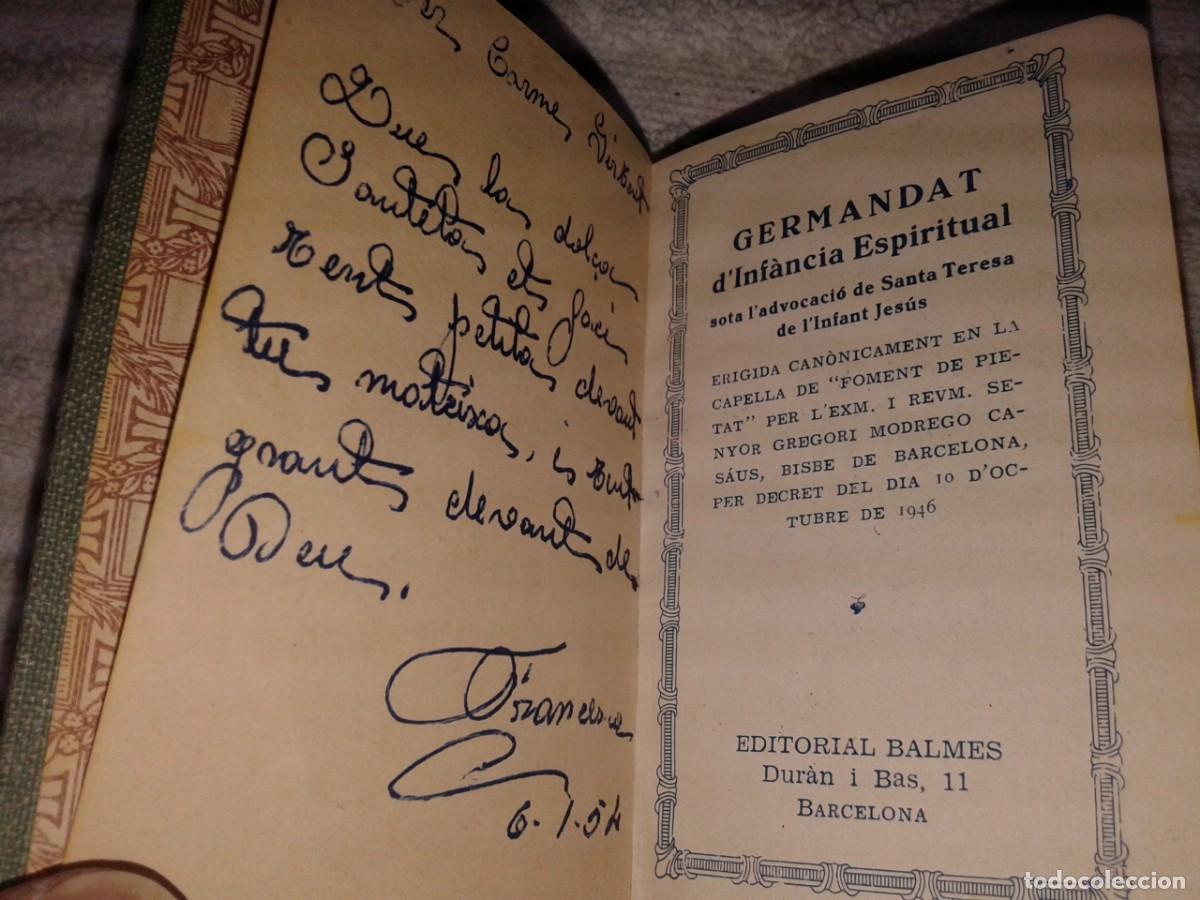 Carme
Que las dolças
Santetas et faci
petita devant
tu mateixa, i
grants devant de
Deu.
Francesca
6-1-54
GERMANDAT
d'Infància Espiritual
sota l'advocació de Santa Teresa
de l'Infant Jesús
ERIGIDA CANÒNICAMENT EN LA
CAPELLA DE "FOMENT DE PIE-
TAT" PER L'EXM. I REVM. SE-
NYOR GREGORI MODREGO CA-
SÁUS, BISBE DE BARCELONA,
PER DECRET DEL DIA 10 D'OC-
TUBRE DE 1946
EDITORIAL BALMES
Duràn i Bas, 11
BARCELONA
todocoleccion